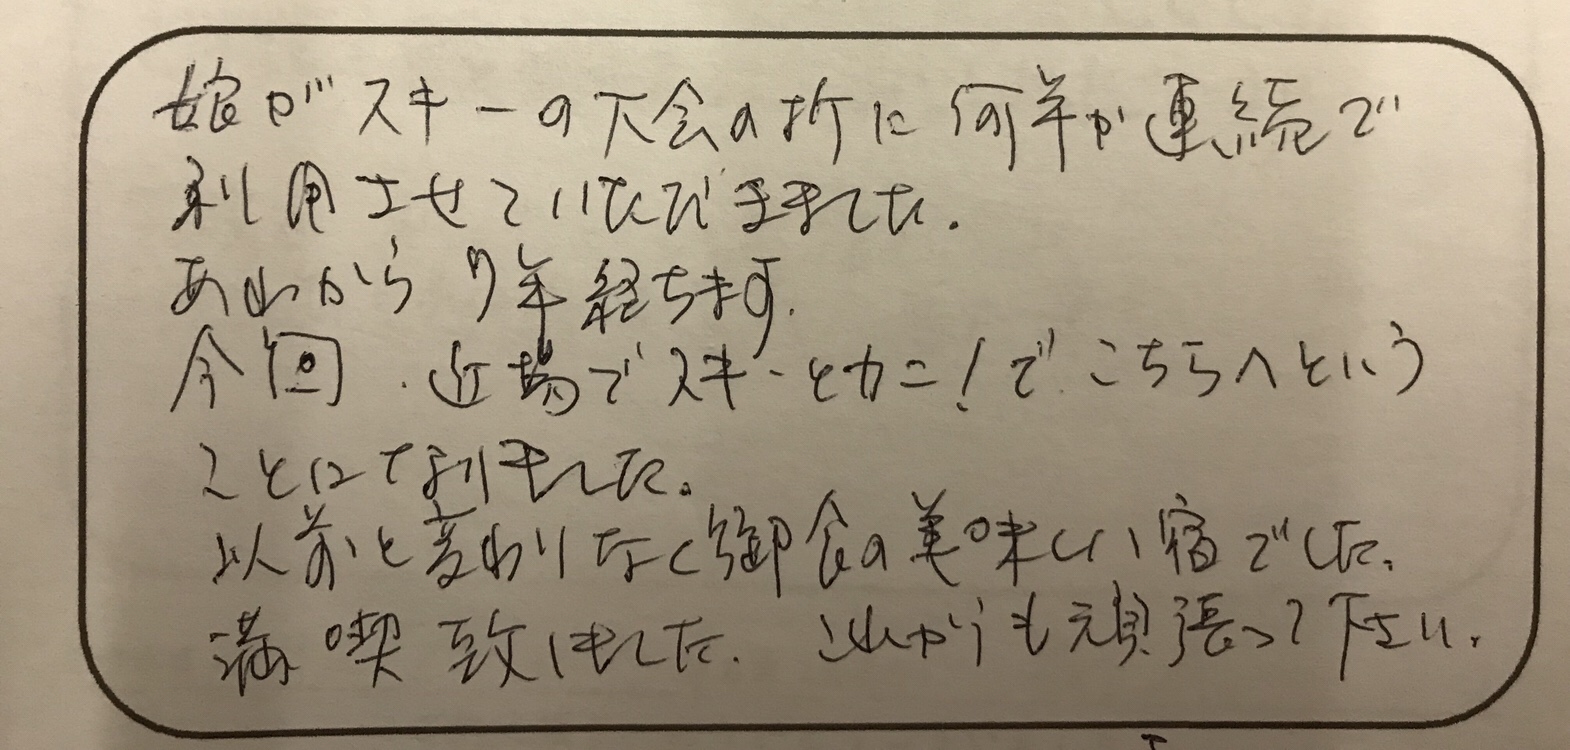 娘がスキーの大会の折に何年か連続で
利用させていただきました.
あれから7年経ちます.
今回.近場でスキーとカニ!でこちらへという
ことになりました。
以前と変わりなく御食の美味しい宿でした.
満喫致しました.これからも頑張って下さい.